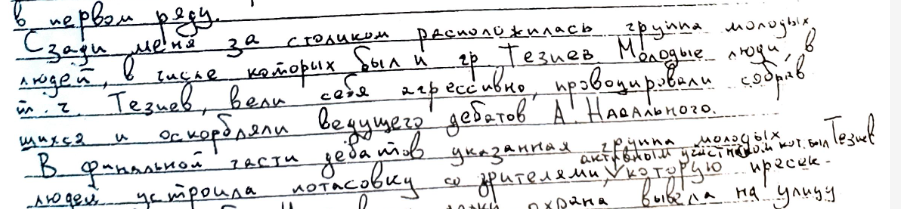 в первом ряду.
Сзади меня за столиком расположилась группа молодых
людей, в числе которых был и гр Тезиев Молодые люди, в
т. ч. Тезиев, вели себя агрессивно, провоцировали собрав
шихся и оскорбляли ведущего дебатов А. Навального.
В финальной части дебатов указанная группа молодых
активным участником кот. был Тезиев
людей устроила потасовку со зрителями, которую пресек-
охрана вывела на улицу